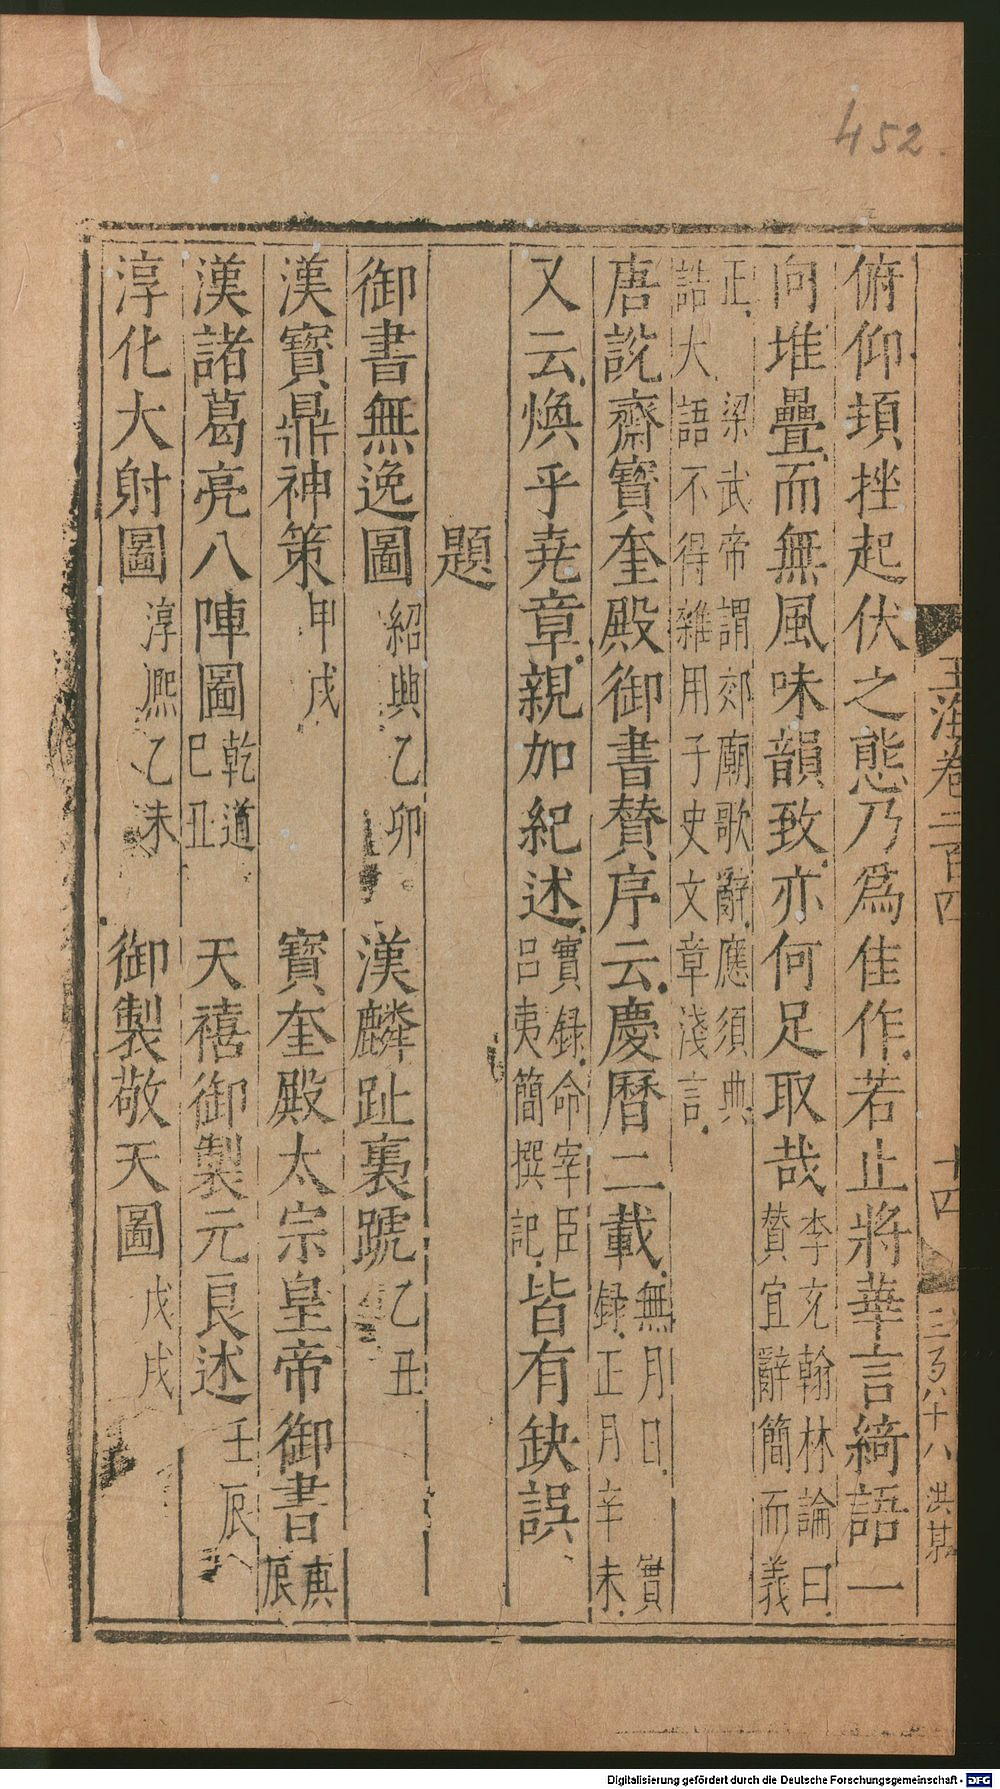 452.
玉海卷二百四
十四
三百八十八
洪甚
俯仰頓挫起伏之態乃爲佳作若止將華言綺語一
向堆疊而無風味韻致亦何足取哉李充翰林論曰
贊宜辭簡而義
正梁武帝謂郊廟歌辭應須典
誥大語不得雜用子史文章淺言
唐說齋寶奎殿御書贊序云慶曆二載無月日實
録正月辛未
又云煥乎堯章親加紀述實録命宰臣
呂夷簡撰記皆有缺誤
題
御書無逸圖紹興乙卯 漢麟趾裛蹏乙丑
漢寶鼎神策甲戌 寶奎殿太宗皇帝御書庚
辰
漢諸葛亮八陣圖乾道
己丑 天禧御製元良述壬辰
淳化大射圖淳熙乙未 御製敬天圖戊戌
Digitalisierung gefördert durch die Deutsche Forschungsgemeinschaft - DFG